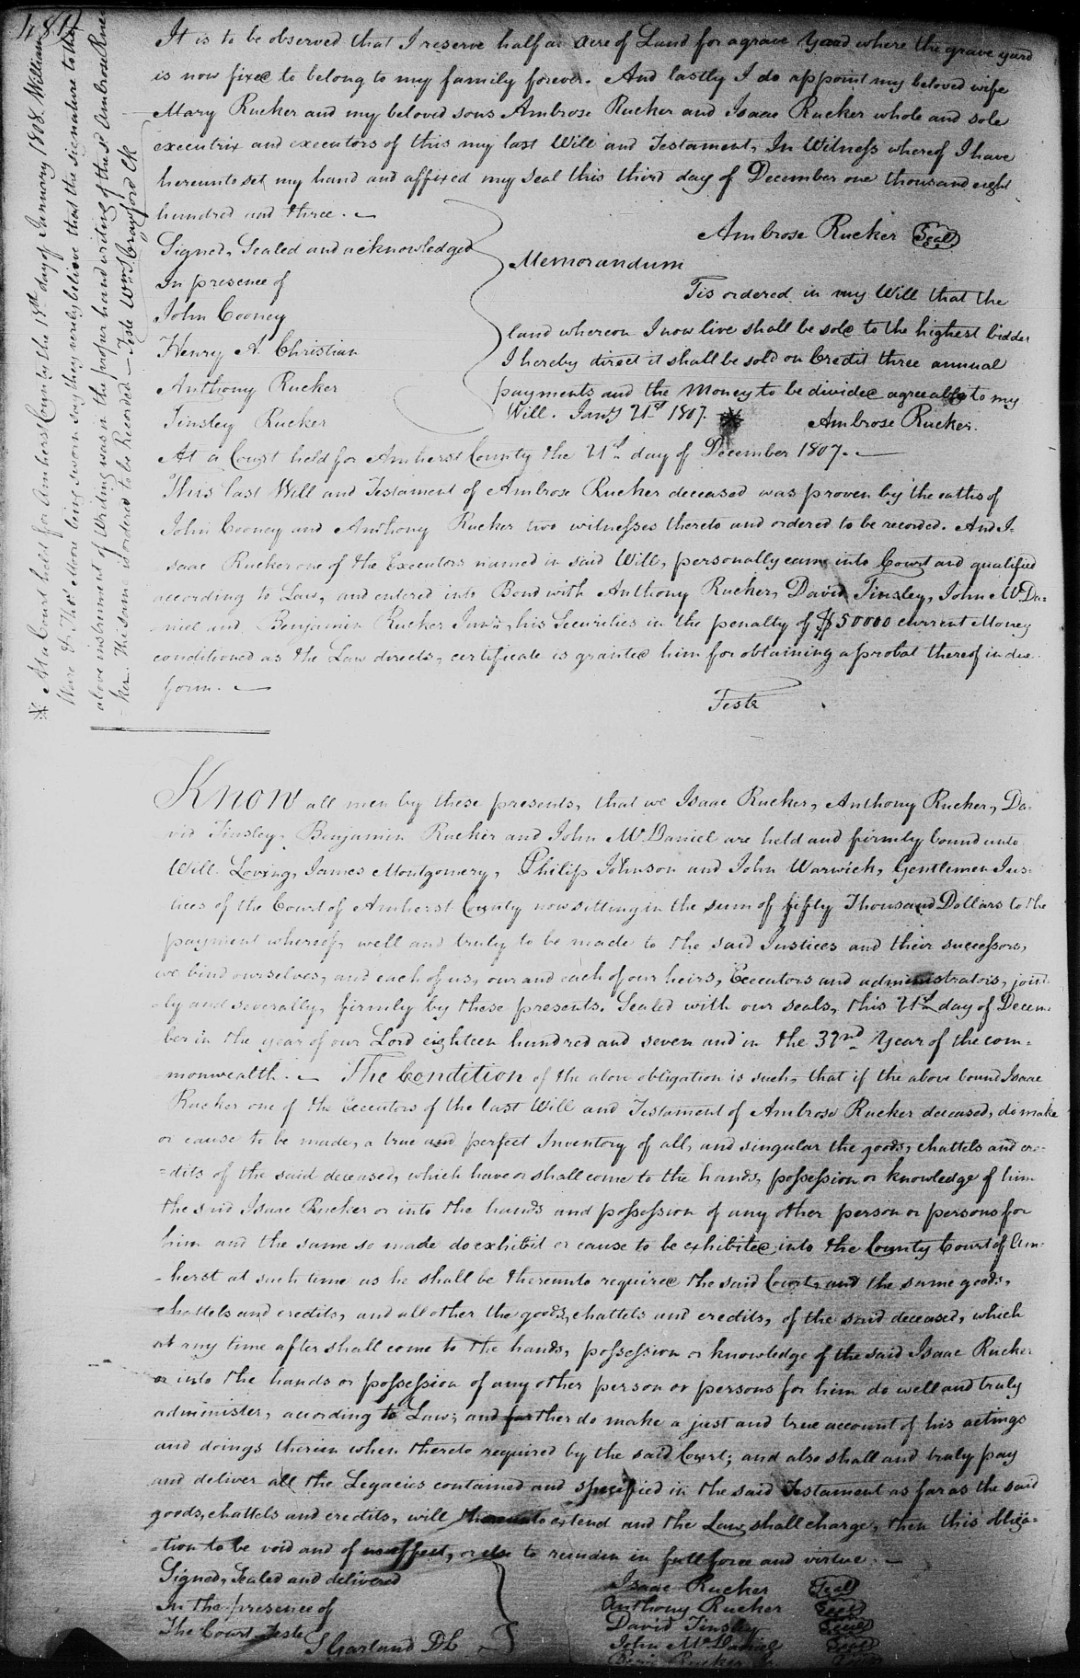 484
It is to be observed that I reserve half an acre of Land for a grave Yard where the grave yard
is now fixed to belong to my family forever. And lastly I do appoint my beloved wife
Mary Rucker and my beloved sons Ambrose Rucker and Isaac Rucker whole and sole
executrix and executors of this my last Will and Testament, In Witness whereof I have
hereunto set my hand and affixed my seal this third day of December one thousand eight
hundred and three. —
Ambrose Rucker Seal
Signed, Sealed and acknowledged
In presence of
John Cooney
Henry A. Christian
Anthony Rucker
Tinsley Rucker
Memorandum
Tis ordered in my Will that the
land whereon I now live shall be sold to the highest bidder
I hereby direct it shall be sold on Credit three annual
payments and the Money to be divided agreeable to my
Will. Jany 21st 1807. *
Ambrose Rucker.
At a Court held for Amherst County the 21st day of December 1807. —
This last Will and Testament of Ambrose Rucker deceased was proven by the oaths of
John Cooney and Anthony Rucker two witnesses thereto and ordered to be recorded. And I-
saac Rucker one of the Executors named in said Will, personally came into Court and qualified
according to Law, and entered into Bond with Anthony Rucker, David Tinsley, John McDa-
niel and Benjamin Rucker Junr. his Securities in the penalty of $50000 current Money
conditioned as the Law directs, certificate is granted him for obtaining a probat thereof in due
form. —
Teste
* At a Court held for Amherst County the 18th day of January 1808. William
Ware & Thos. Moore being sworn say they verily believe that the signature to the
above instrument of Writing was in the proper hand writing of the sd. Ambrose Ruc-
ker. The same is ordered to be Recorded — Teste Wm S Crawford Clk
Know all men by these presents, that we Isaac Rucker, Anthony Rucker, Da-
vid Tinsley, Benjamin Rucker and John McDaniel are held and firmly bound unto
Will. Loving, James Montgomery, Philip Johnson and John Warwick, Gentlemen Jus-
tices of the Court of Amherst County now sitting in the sum of fifty Thousand Dollars to the
payment whereof, well and truly to be made to the said Justices and their successors,
we bind ourselves, and each of us, our and each of our heirs, Executors and administrators, joint-
ly and severally, firmly by these presents. Sealed with our seals, this 21st day of Decem-
ber in the year of our Lord eighteen hundred and seven and in the 32nd Year of the com-
monwealth. — The Condition of the above obligation is such, that if the above bound Isaac
Rucker one of the Executors of the last Will and Testament of Ambrose Rucker deceased, do make
or cause to be made, a true and perfect Inventory of all, and singular the goods, chattels and cre-
-dits of the said deceased, which have or shall come to the hands, possession or knowledge of him
the said Isaac Rucker or into the hands and possession of any other person or persons for
him and the same so made do exhibit or cause to be exhibited into the County Court of Am-
-herst at such time as he shall be thereunto required the said Court, and the same goods,
chattels and credits, and all other the goods, chattels and credits, of the said deceased, which
at any time after shall come to the hands, possession or knowledge of the said Isaac Rucker
or into the hands or possession of any other person or persons for him do well and truly
administer, according to Law; and further do make a just and true account of his actings
and doings therein when thereto required by the said Court; and also shall and truly pay
and deliver all the Legacies contained and specified in the said Testament as far as the said
goods, chattels and credits, will thereunto extend and the Law shall charge, then this obliga-
-tion to be void and of no effect, or else to remain in full force and virtue. —
Signed, Sealed and delivered
In the presence of
The Court Teste
S Garland DC
Isaac Rucker Seal
Anthony Rucker Seal
David Tinsley Seal
John McDaniel Seal
Benj. Rucker